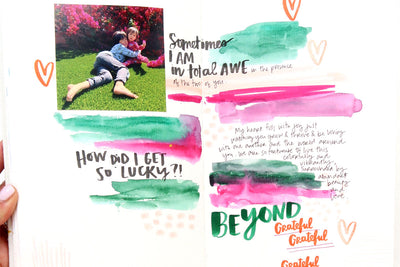 Sometimes
I AM
in total AWE in the presence
of the two of you
HOW DID I GET
SO LUCKY?!
My heart fills with joy just
watching you grow & thrive & be loving
with one another and the world around
you. We are so fortunate to live this
colorfully and
vibrantly,
surrounded by
abundant
beauty
and
love
BEYOND
Grateful
Grateful
Grateful